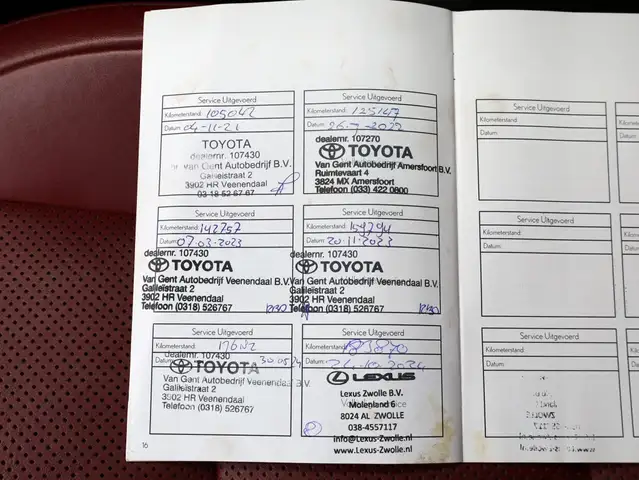 Service Uitgevoerd
Kilometerstand: 105042
Datum: 04-11-21
TOYOTA
dealernr. 107430
Van Gent Autobedrijf B.V.
Galileïstraat 2
3902 HR Veenendaal
Service Uitgevoerd
Kilometerstand: 125147
Datum: 26-7-2022
dealernr. 107270
TOYOTA
Van Gent Autobedrijf Amersfoort B.V.
Ruimtevaart 4
3824 MX Amersfoort
Telefoon (033) 422 0800
Service Uitgevoerd
Kilometerstand: 142757
Datum: 07-03-2023
dealernr. 107430
TOYOTA
Van Gent Autobedrijf Veenendaal B.V.
Galileïstraat 2
3902 HR Veenendaal
Telefoon (0318) 526767
Service Uitgevoerd
Kilometerstand: 159794
Datum: 20-11-2023
dealernr. 107430
TOYOTA
Van Gent Autobedrijf Veenendaal B.V.
Galileïstraat 2
3902 HR Veenendaal
Telefoon (0318) 526767
Service Uitgevoerd
Kilometerstand:
Datum: 30-05-24
dealernr. 107430
TOYOTA
Van Gent Autobedrijf Veenendaal B.V.
Galileïstraat 2
3902 HR Veenendaal
Telefoon (0318) 526767
Service Uitgevoerd
Kilometerstand: 183870
Datum: 24-10-2024
LEXUS
Lexus Zwolle B.V.
Molenland 6
8024 AL ZWOLLE
038-4557117
info@Lexus-Zwolle.nl
www.Lexus-Zwolle.nl
16
Service Uitgevoerd
Kilometerstand:
Datum:
Service Uitgevoerd
Kilometerstand:
Datum:
Service Uitgevoerd
Kilometerstand:
Datum: